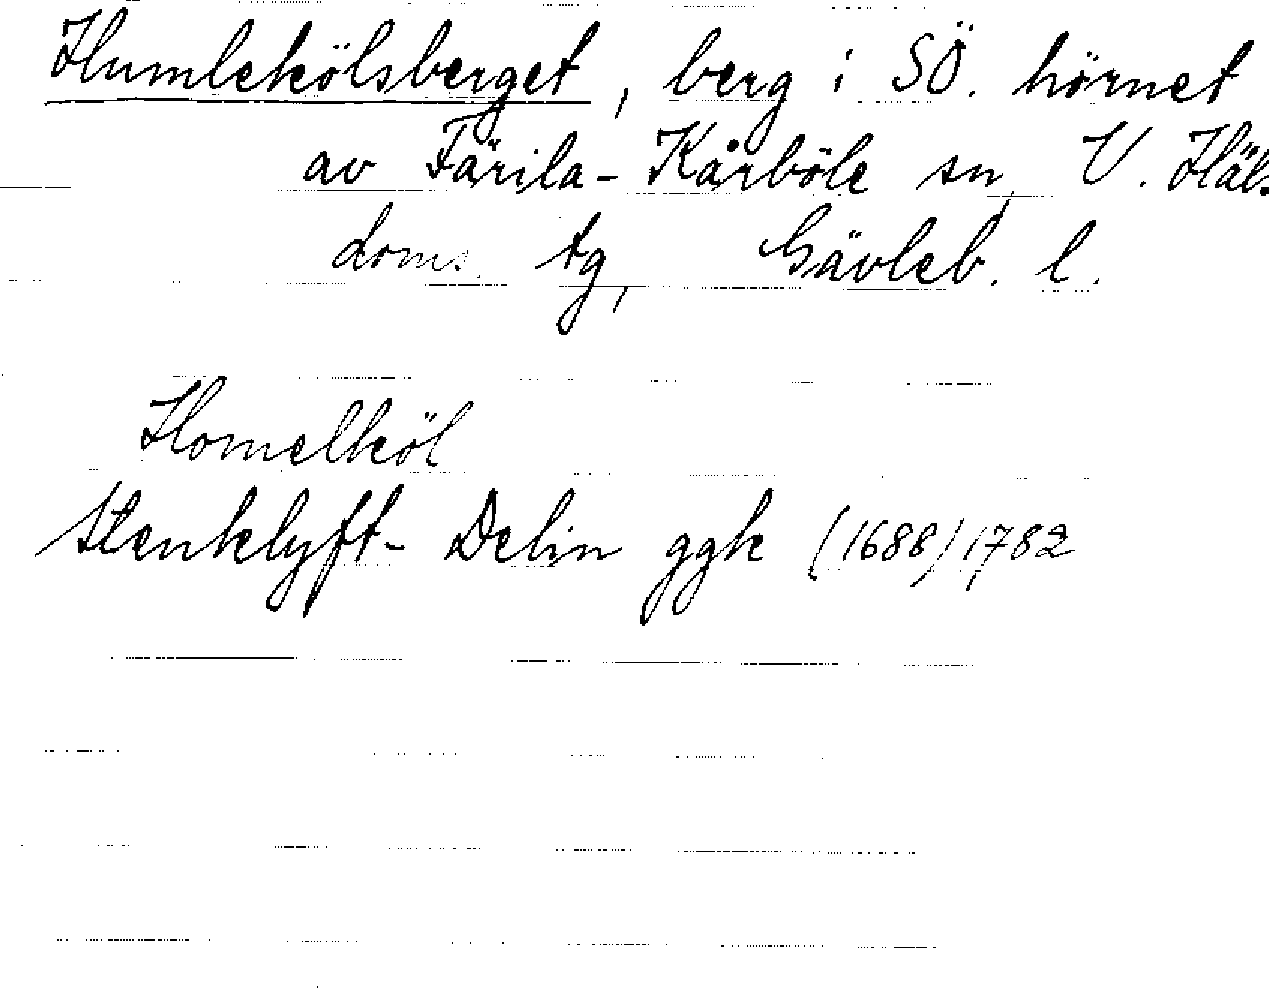 Humlekölsberget, berg i SÖ. hörnet
av Färila-Kårböle sn, V. Häls.
doms. tg, Gävleb. l.
Homelköl
Stenklyft- Delin ggk (1688) 1782